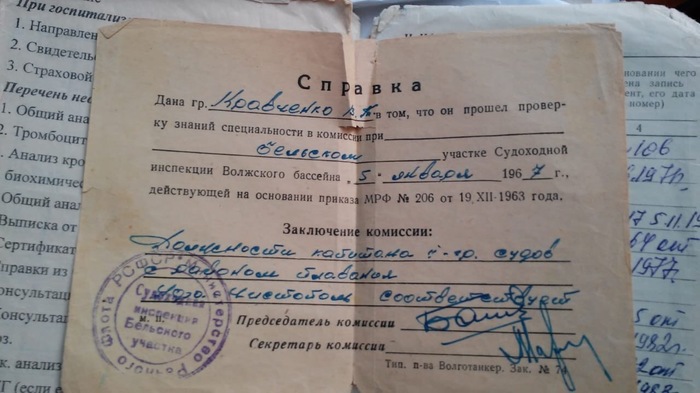 При госпитали
1. Направлен
2. Свидетель
3. Страховой
Перечень нео
1. Общий ана
2. Тромбоцит
. Анализ кро
биохимичес
. Общий анал
Выписка от
Сертификат
правки из
онсультац
Консульта
оз.
к. анализ
Г (если е
Справка
Дана гр. Кравченко в том, что он прошел провер-
ку знаний специальности в комиссии при
Бельском участке Судоходной
инспекции Волжского бассейна „5" января 1967 г.,
действующей на основании приказа МРФ № 206 от 19.XII-1963 года.
Заключение комиссии:
Должности капитана гр. судов
с районом плавания
Уфа Чистополь соответствует
Председатель комиссии
Секретарь комиссии
м. п.
Министерство Речного Флота РСФСР
Судоходная
инспекция
Бельского
участка
Тип. п-ва Волготанкер. Зак. № 74
основании чего
ена запись
ент, его дата
номер)
4
1977.
1982г.